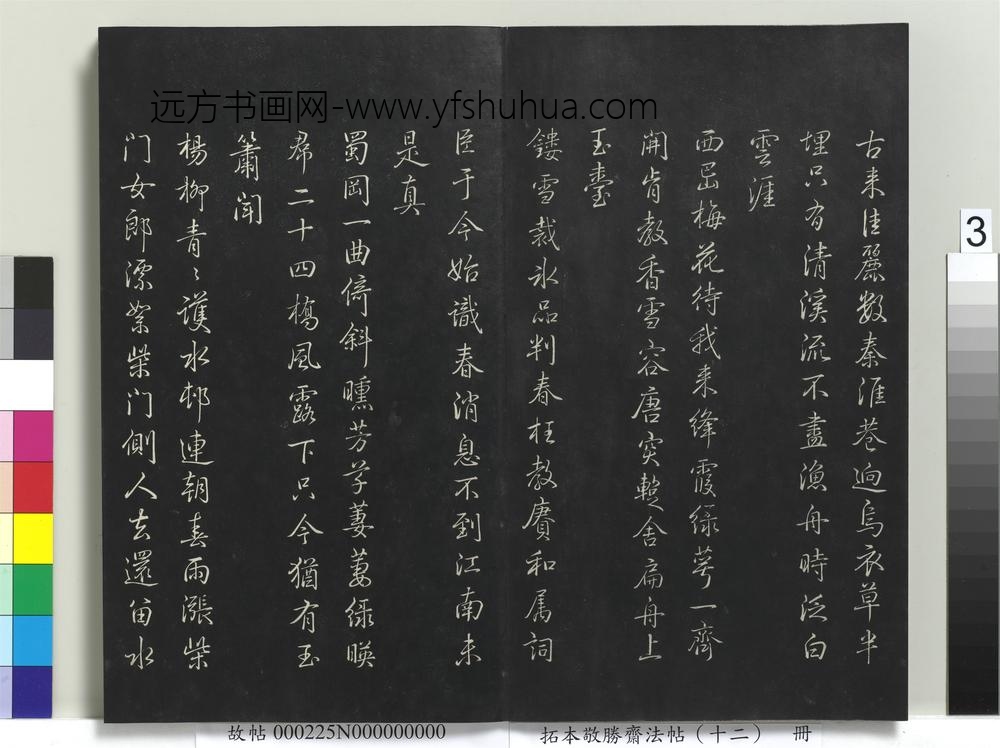 远方书画网-www.yfshuhua.com
古来佳麗数秦淮巷迥烏衣草半
埋只有清溪流不盡漁舟時泛白
雲涯
西崦梅花待我来絳霞緑萼一齊
開肯教香雪容唐突蹔舍扁舟上
玉臺
鏤雪裁冰品判春枉教賡和属詞
臣于今始識春消息不到江南未
是真
蜀岡一曲倚斜曛芳草萋萋緑暎
帬二十四橋風露下只今猶有玉
簫聞
楊柳青〻護水邨連朝春雨漲柴
门女郎漂絮柴门側人去還留水
3
故帖 000225N000000000
拓本敬勝齋法帖（十二） 冊